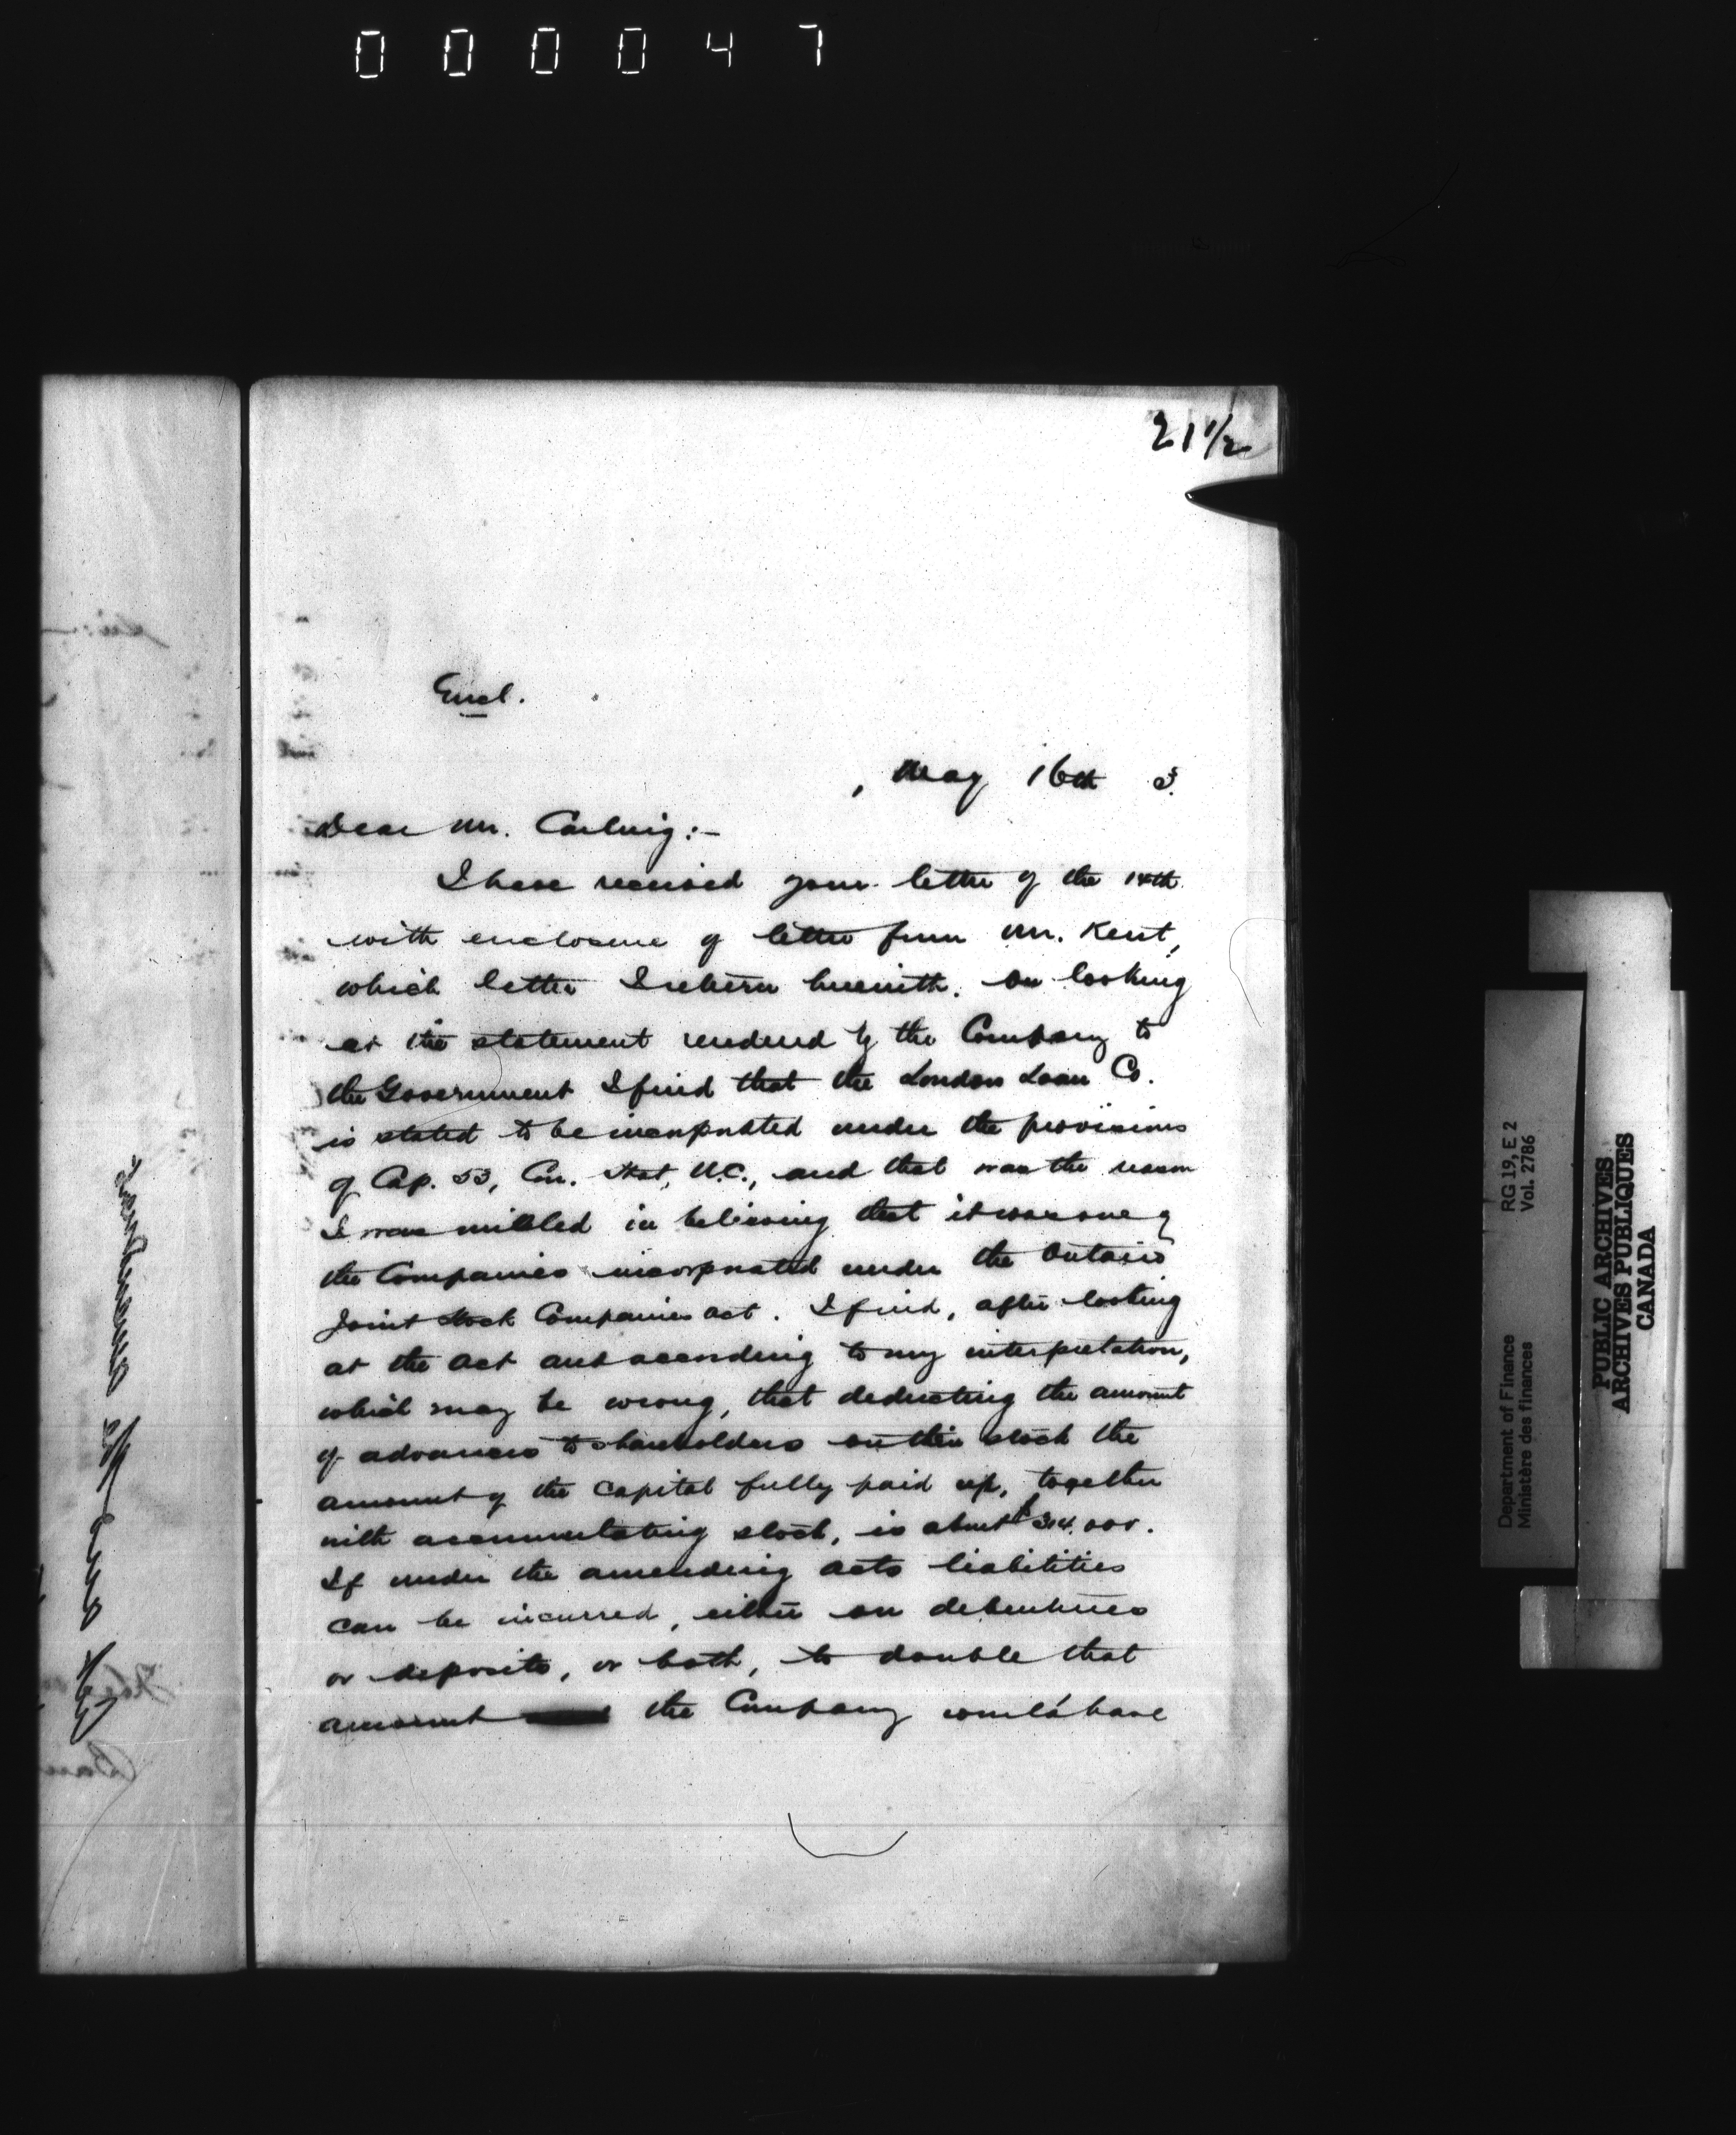 000047
21 1/2
Encl.
, May 16th 5.
Dear Mr. Carling:-
I have received your letter of the 14th
with enclosure of letter from Mr. Kent,
which letter I return herewith. On looking
at the statement rendered by the Company to
the Government I find that the London Loan Co.
is stated to be incorporated under the provisions
of Cap. 53, Con. Stat, U.C., and that was the reason
I was misled in believing that it was one of
the Companies incorporated under the Ontario
Joint Stock Companies Act. I find, after looking
at the Act and according to my interpretation,
which may be wrong, that deducting the amount
of advances to shareholders on their stock the
amount of the capital fully paid up, together
with accumulating stock, is about $314,000.
If under the amending acts liabilities
can be incurred, either on debentures
or deposits, or both, to double that
amount the Company would have
Department of Finance RG 19, E 2
Ministère des finances Vol. 2786
PUBLIC ARCHIVES
ARCHIVES PUBLIQUES
CANADA